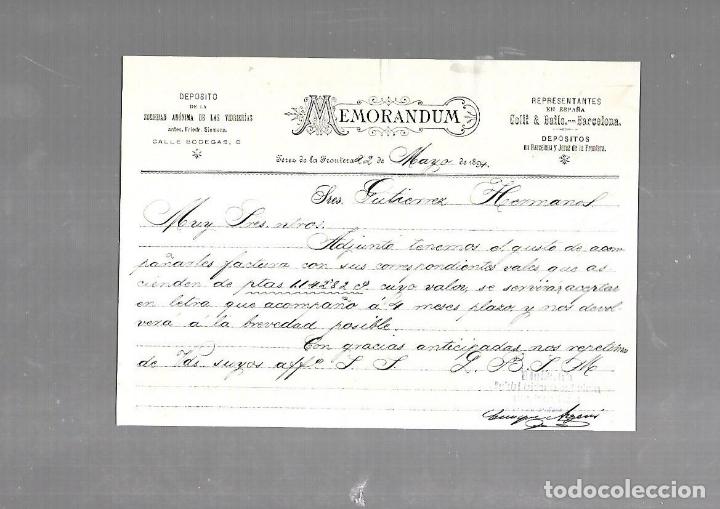 DEPOSITO
DE LA
SOCIEDAD ANÓNIMA DE LAS VIDRIERÍAS
antes. Friedr. Siemens.
CALLE BODEGAS, 6
MEMORANDUM
REPRESENTANTES
EN ESPAÑA
Barcelona.
DEPOSITOS
en Barcelona y Jerez de la Frontera.
Jerez de la Frontera 22 de Mayo de 1894
Sres. Gutierrez Hermanos
Muy Sres. ntros:
Adjunto tenemos el gusto de acom
pañarles factura con sus correspondientes vales que as
cienden de ptas cuyo valor, se servirán aceptar
en letra que acompaño á 4 meses plazo, y nos devol
verá á la brevedad posible.
Con gracias anticipadas nos repetimos
de Vds. suyos aff.º S. S. Q. B. S. M
todocoleccion.net